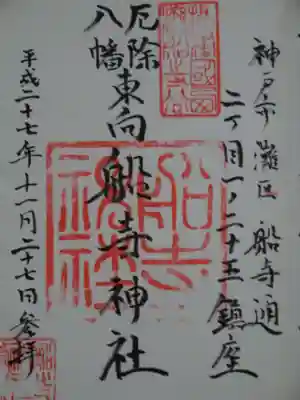 神戸市灘区船寺通
二丁目一ノ二十三鎮座
厄除
八幡
東向船寺神社
船寺
神社
平成二十七年十一月二十七日参拝